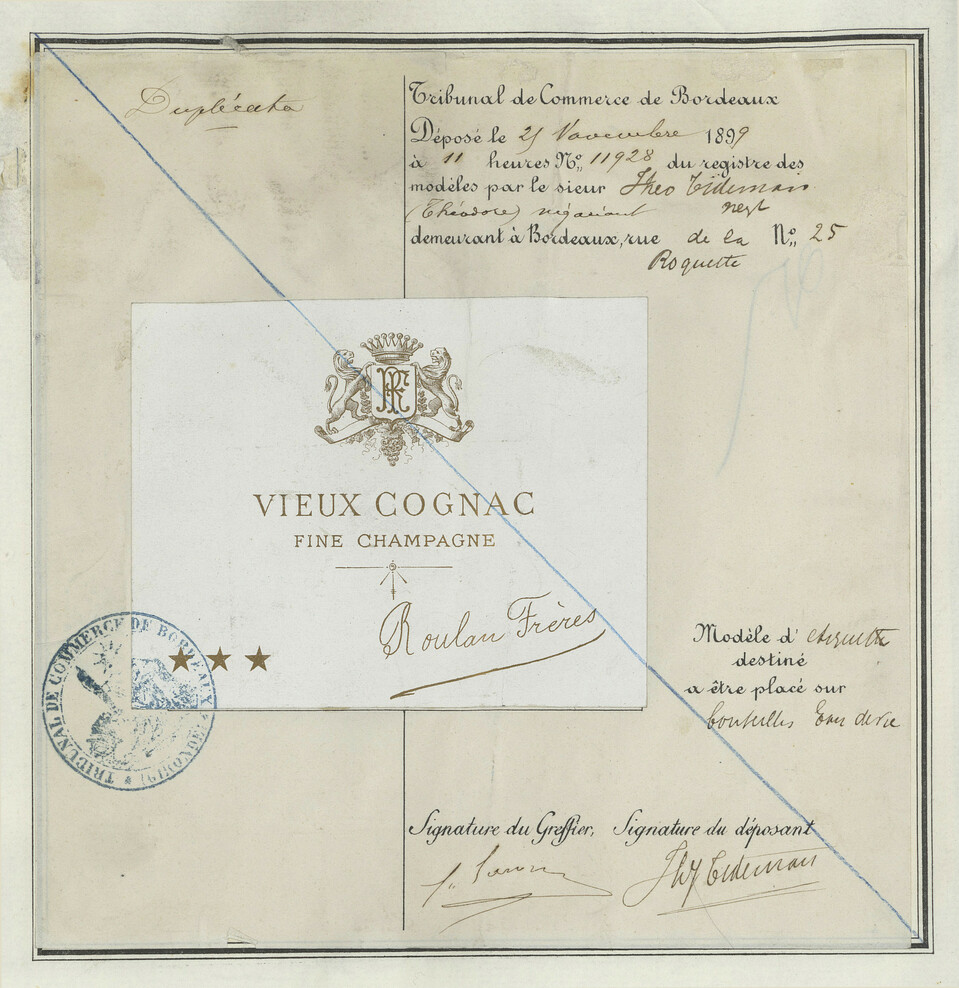 Duplicata
Tribunal de Commerce de Bordeaux
Déposé le 21 Novembre 1899
à 11 heures No, 11928 du registre des
modèles par le sieur Theo Tideman
(Théodore) négociant negt
demeurant à Bordeaux, rue de la No, 25
Roquette
VIEUX COGNAC
FINE CHAMPAGNE
Roulan Frères
TRIBUNAL DE COMMERCE DE BORDEAUX (GIRONDE)
Modèle d' etiquette
destiné
a être placé sur
bouteilles Eau de vie
Signature du Greffier, Signature du déposant
Tideman